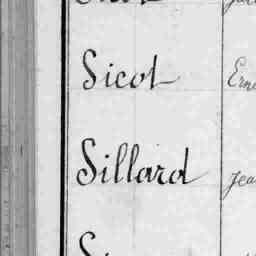 Sicot Erne
Sillard Jea